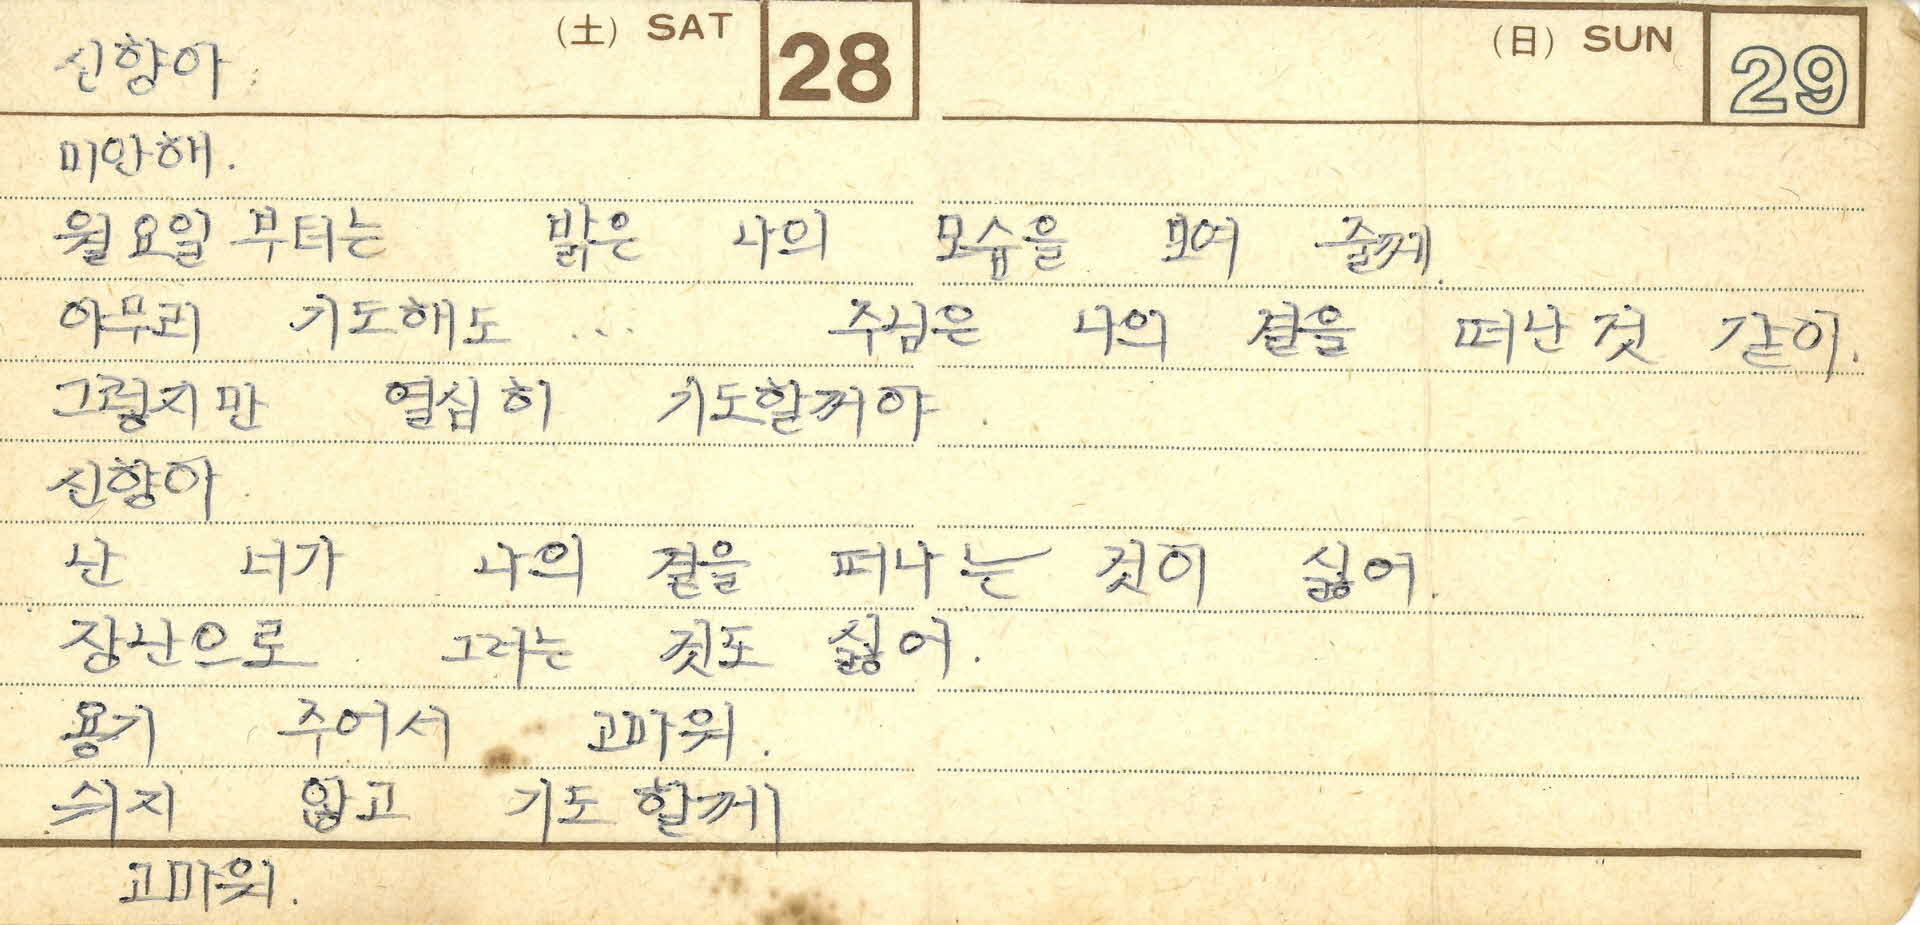 (土) SAT 28
(日) SUN 29
신향아
미안해.
월요일부터는 밝은 나의 모습을 보여 줄께.
아무리 기도해도 ... 주님은 나의 곁을 떠난 것 같이.
그렇지만 열심히 기도할꺼야.
신향아
난 너가 나의 곁을 떠나는 것이 싫어.
장난으로 그러는 것도 싫어.
용기 주어서 고마워.
쉬지 않고 기도 할께
고마워.